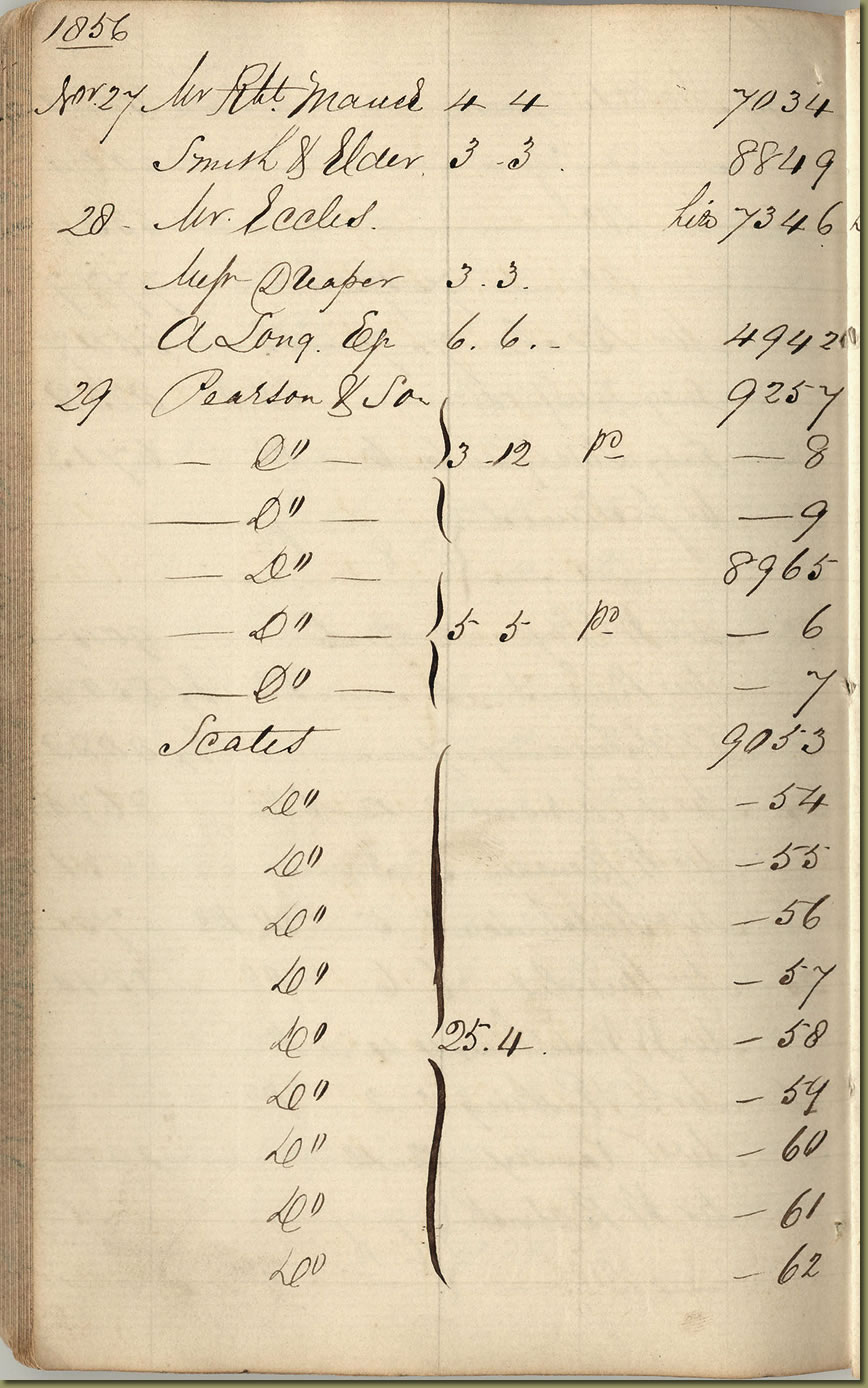 1856
Nov. 27 Mr Robt. 4 4 7034
Smith & Elder 3 - 3. 8849
28 - Mr. Eccles. his 7346
Messrs Draper 3. 3.
A Long. Esq 6. 6. - 4942
29 Pearson & Son 9257
— Do" — 3 - 12 pd — 8
— Do" — — 9
— Do" — 8965
— Do" — 5 5 pd — 6
— Do" — — 7
Scates 9053
Do" - 54
Do" - 55
Do" - 56
Do" - 57
Do" 25. 4. - 58
Do" - 59
Do" - 60
Do" - 61
Do" - 62